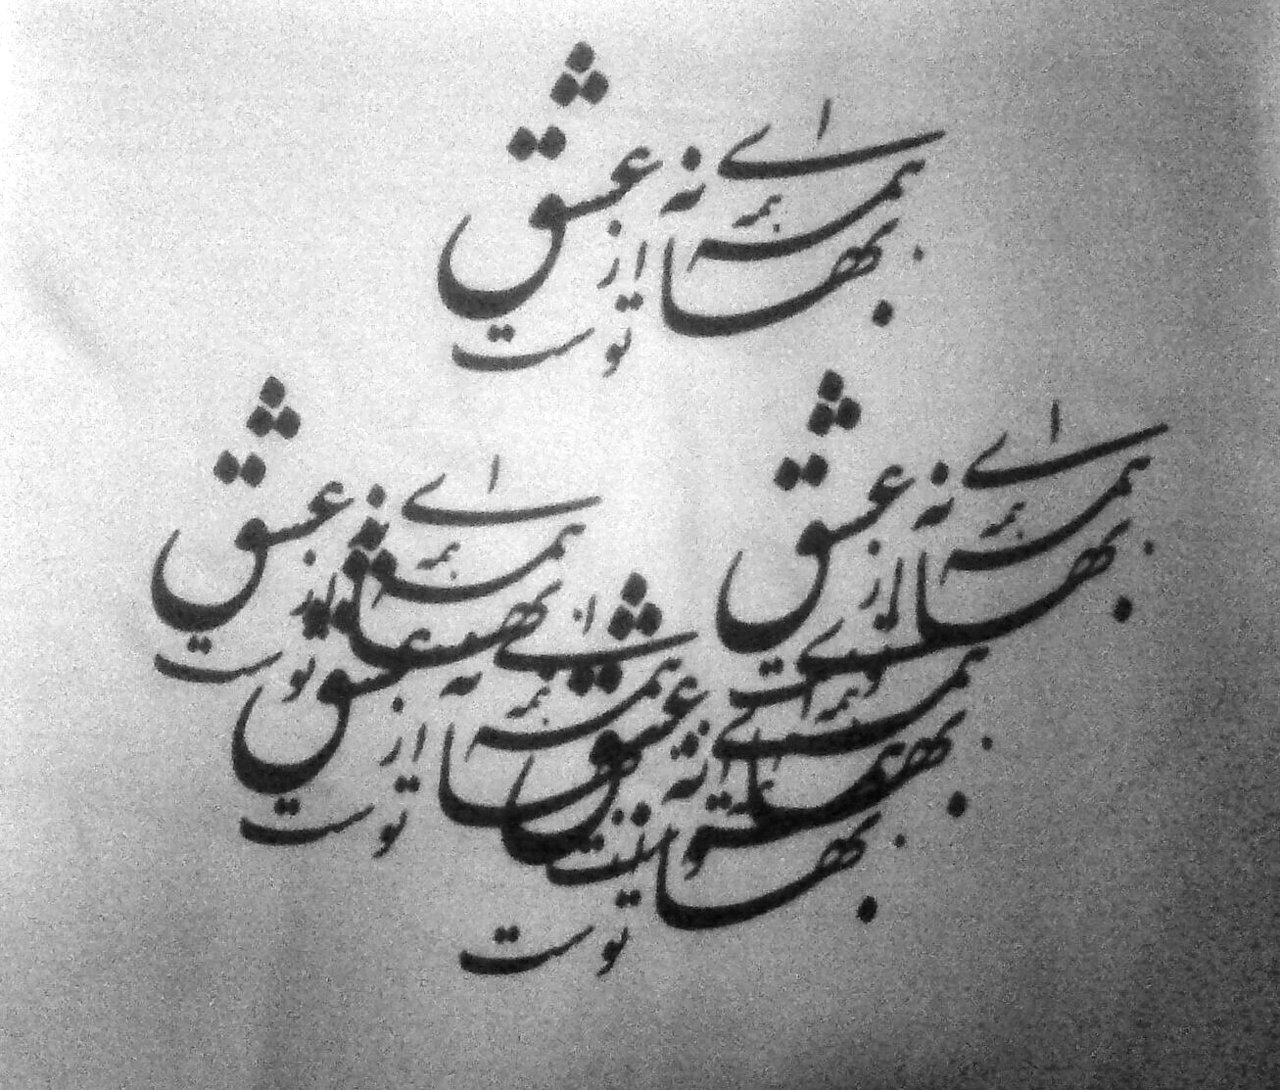 ای همه بهانه عشق از توست
ای همه بهانه عشق از توست
ای همه بهانه عشق از توست
ای همه بهانه عشق از توست
ای همه بهانه عشق از توست
ای همه بهانه عشق از توست